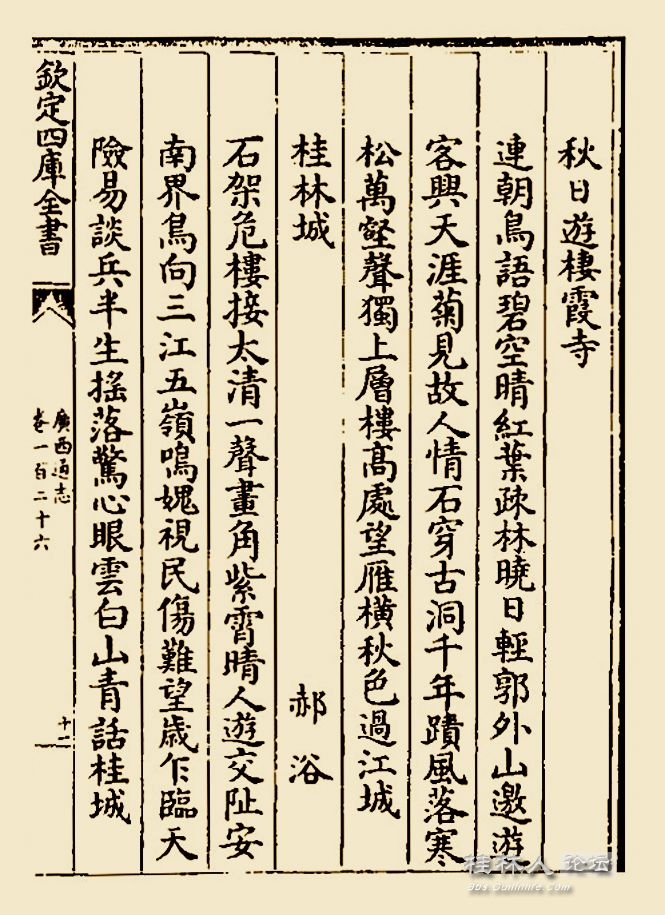 秋日遊棲霞寺
連朝鳥語碧空晴紅葉疎林曉日輕郭外山邀游
客興天涯菊見故人情石穿古洞千年蹟風落寒
松萬壑聲獨上層樓髙處望雁橫秋色過江城
桂林城 郝浴
石架危樓接太清一聲畫角紫霄晴人遊交阯安
南界鳥向三江五嶺鳴媿視民傷難望歳乍臨天
險易談兵半生搖落驚心眼雲白山青話桂城
欽定四庫全書
廣西通志
卷一百二十六
十二
桂林人论坛
bbs.Guilinlife.Com